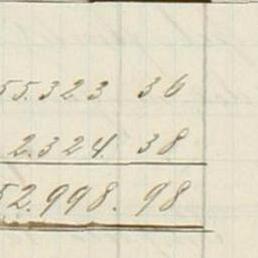 55.323 36
2.324. 38
52.998. 98